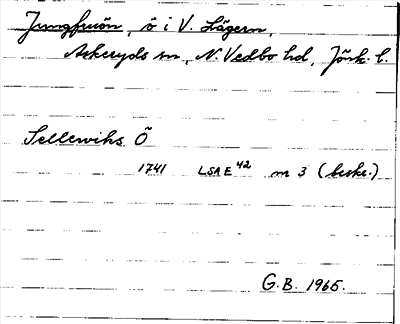 Jungfruön, ö i V. Lägern,
Askeryds sn, N. Vedbo hd, Jönk. l.
Sellewihs Ö
1741 LSA E 42 nr 3 (beskr.)
G.B. 1965.